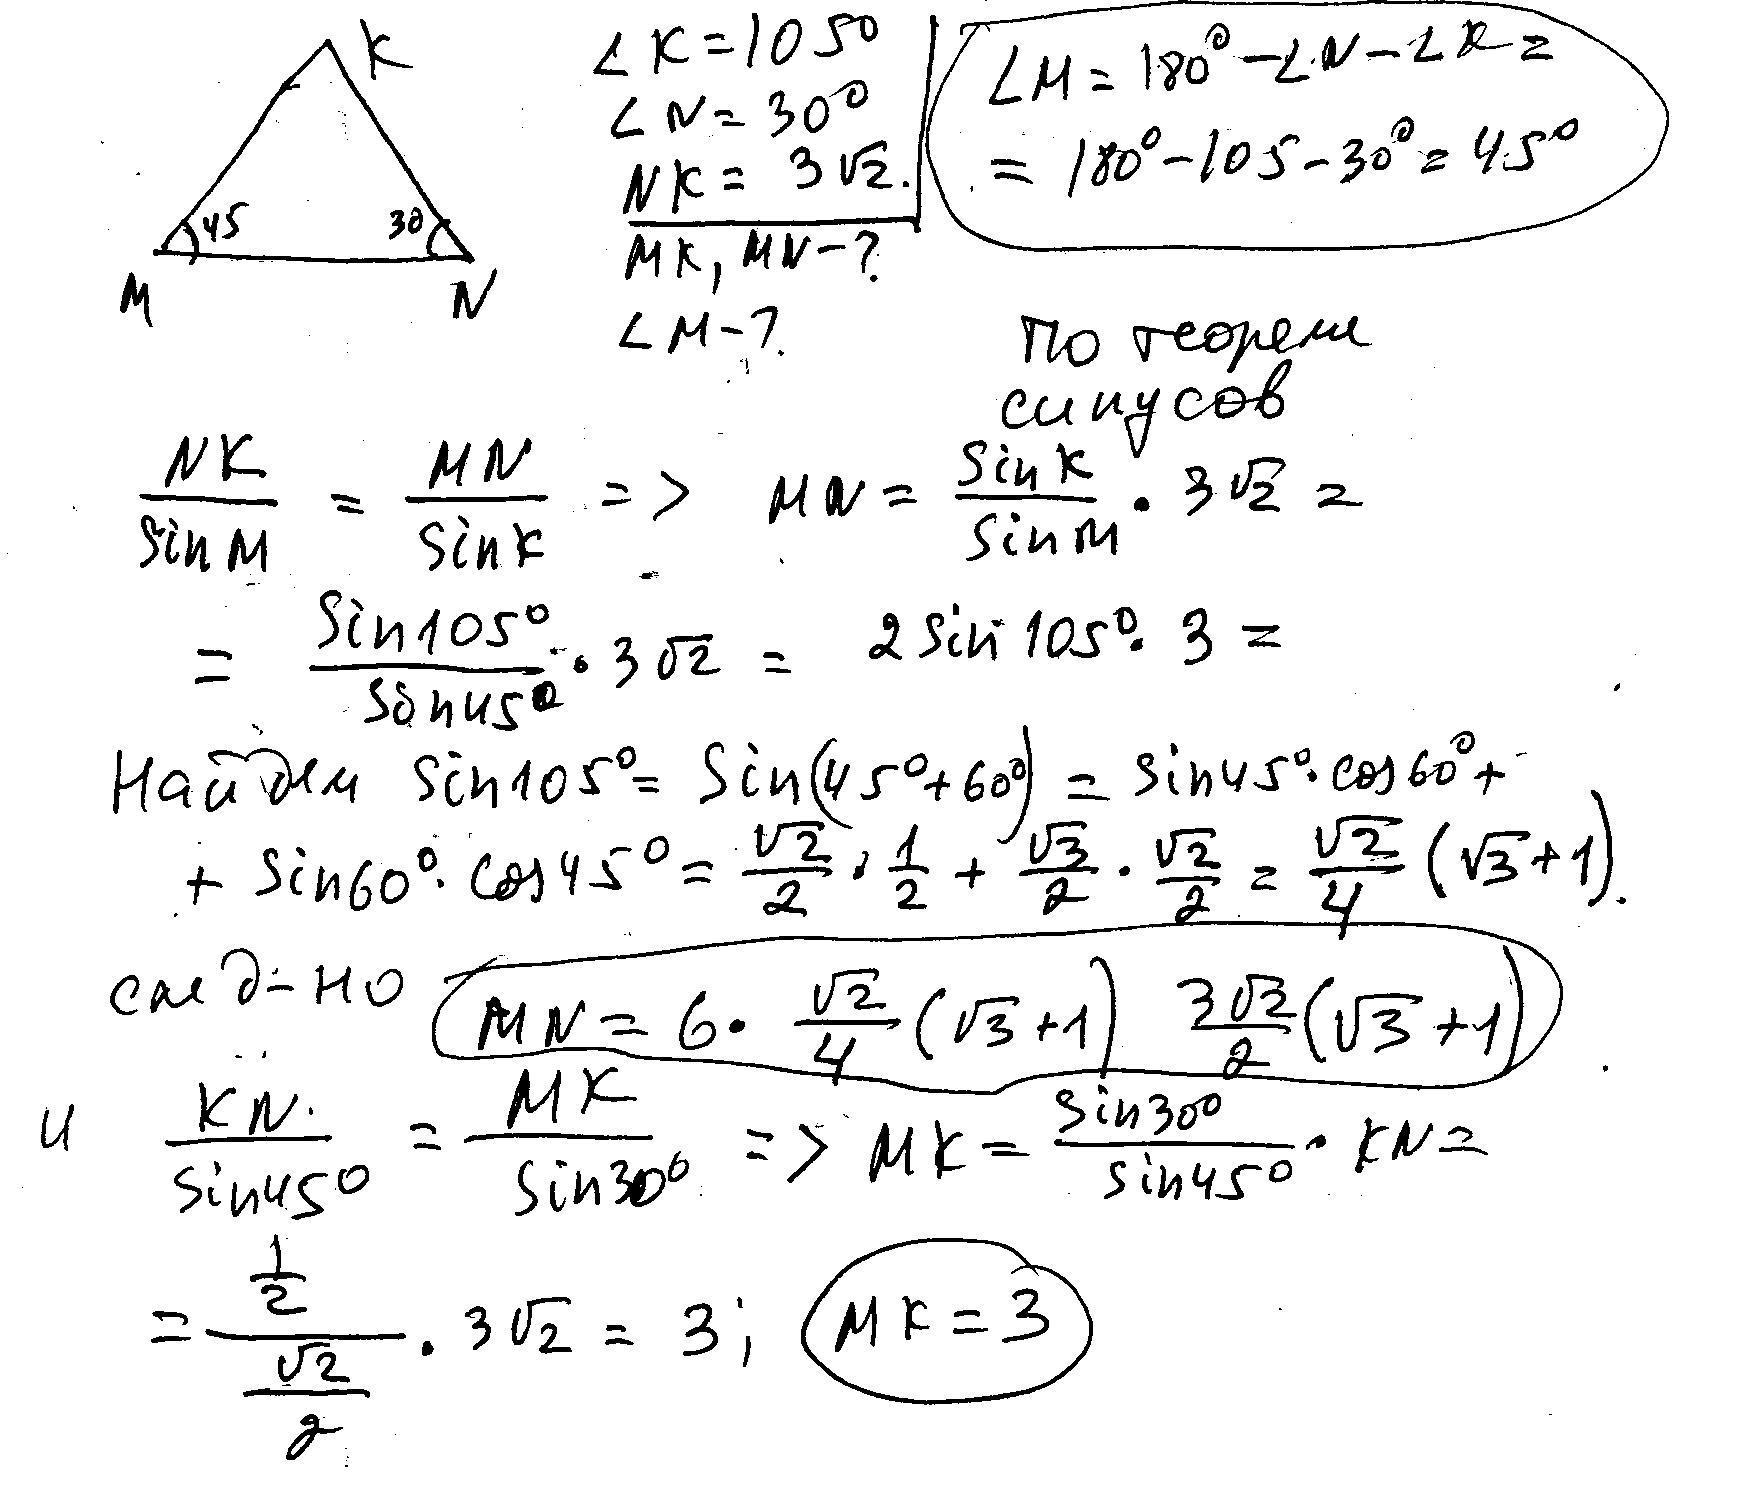 K
45
30
M
N
∠K=105°
∠N=30°
NK=3√2.
MK, MN-?
∠M-?
∠M=180°-∠N-∠K=
=180°-105-30°=45°
По теореме
синусов
NK/sinM = MN/sinK => MN = sinK/sinM · 3√2 =
= sin105°/sin45° · 3√2 = 2sin105°·3 =
Найдем sin105°=sin(45°+60°)=sin45°·cos60°+
+ sin60°·cos45° = √2/2 · 1/2 + √3/2 · √2/2 = √2/4 (√3+1).
след-но MN=6· √2/4 (√3+1) 3√2/2 (√3+1)
и KN/sin45° = MK/sin30° => MK = sin30°/sin45° · KN =
= 1/2 / √2/2 · 3√2 = 3; MK=3